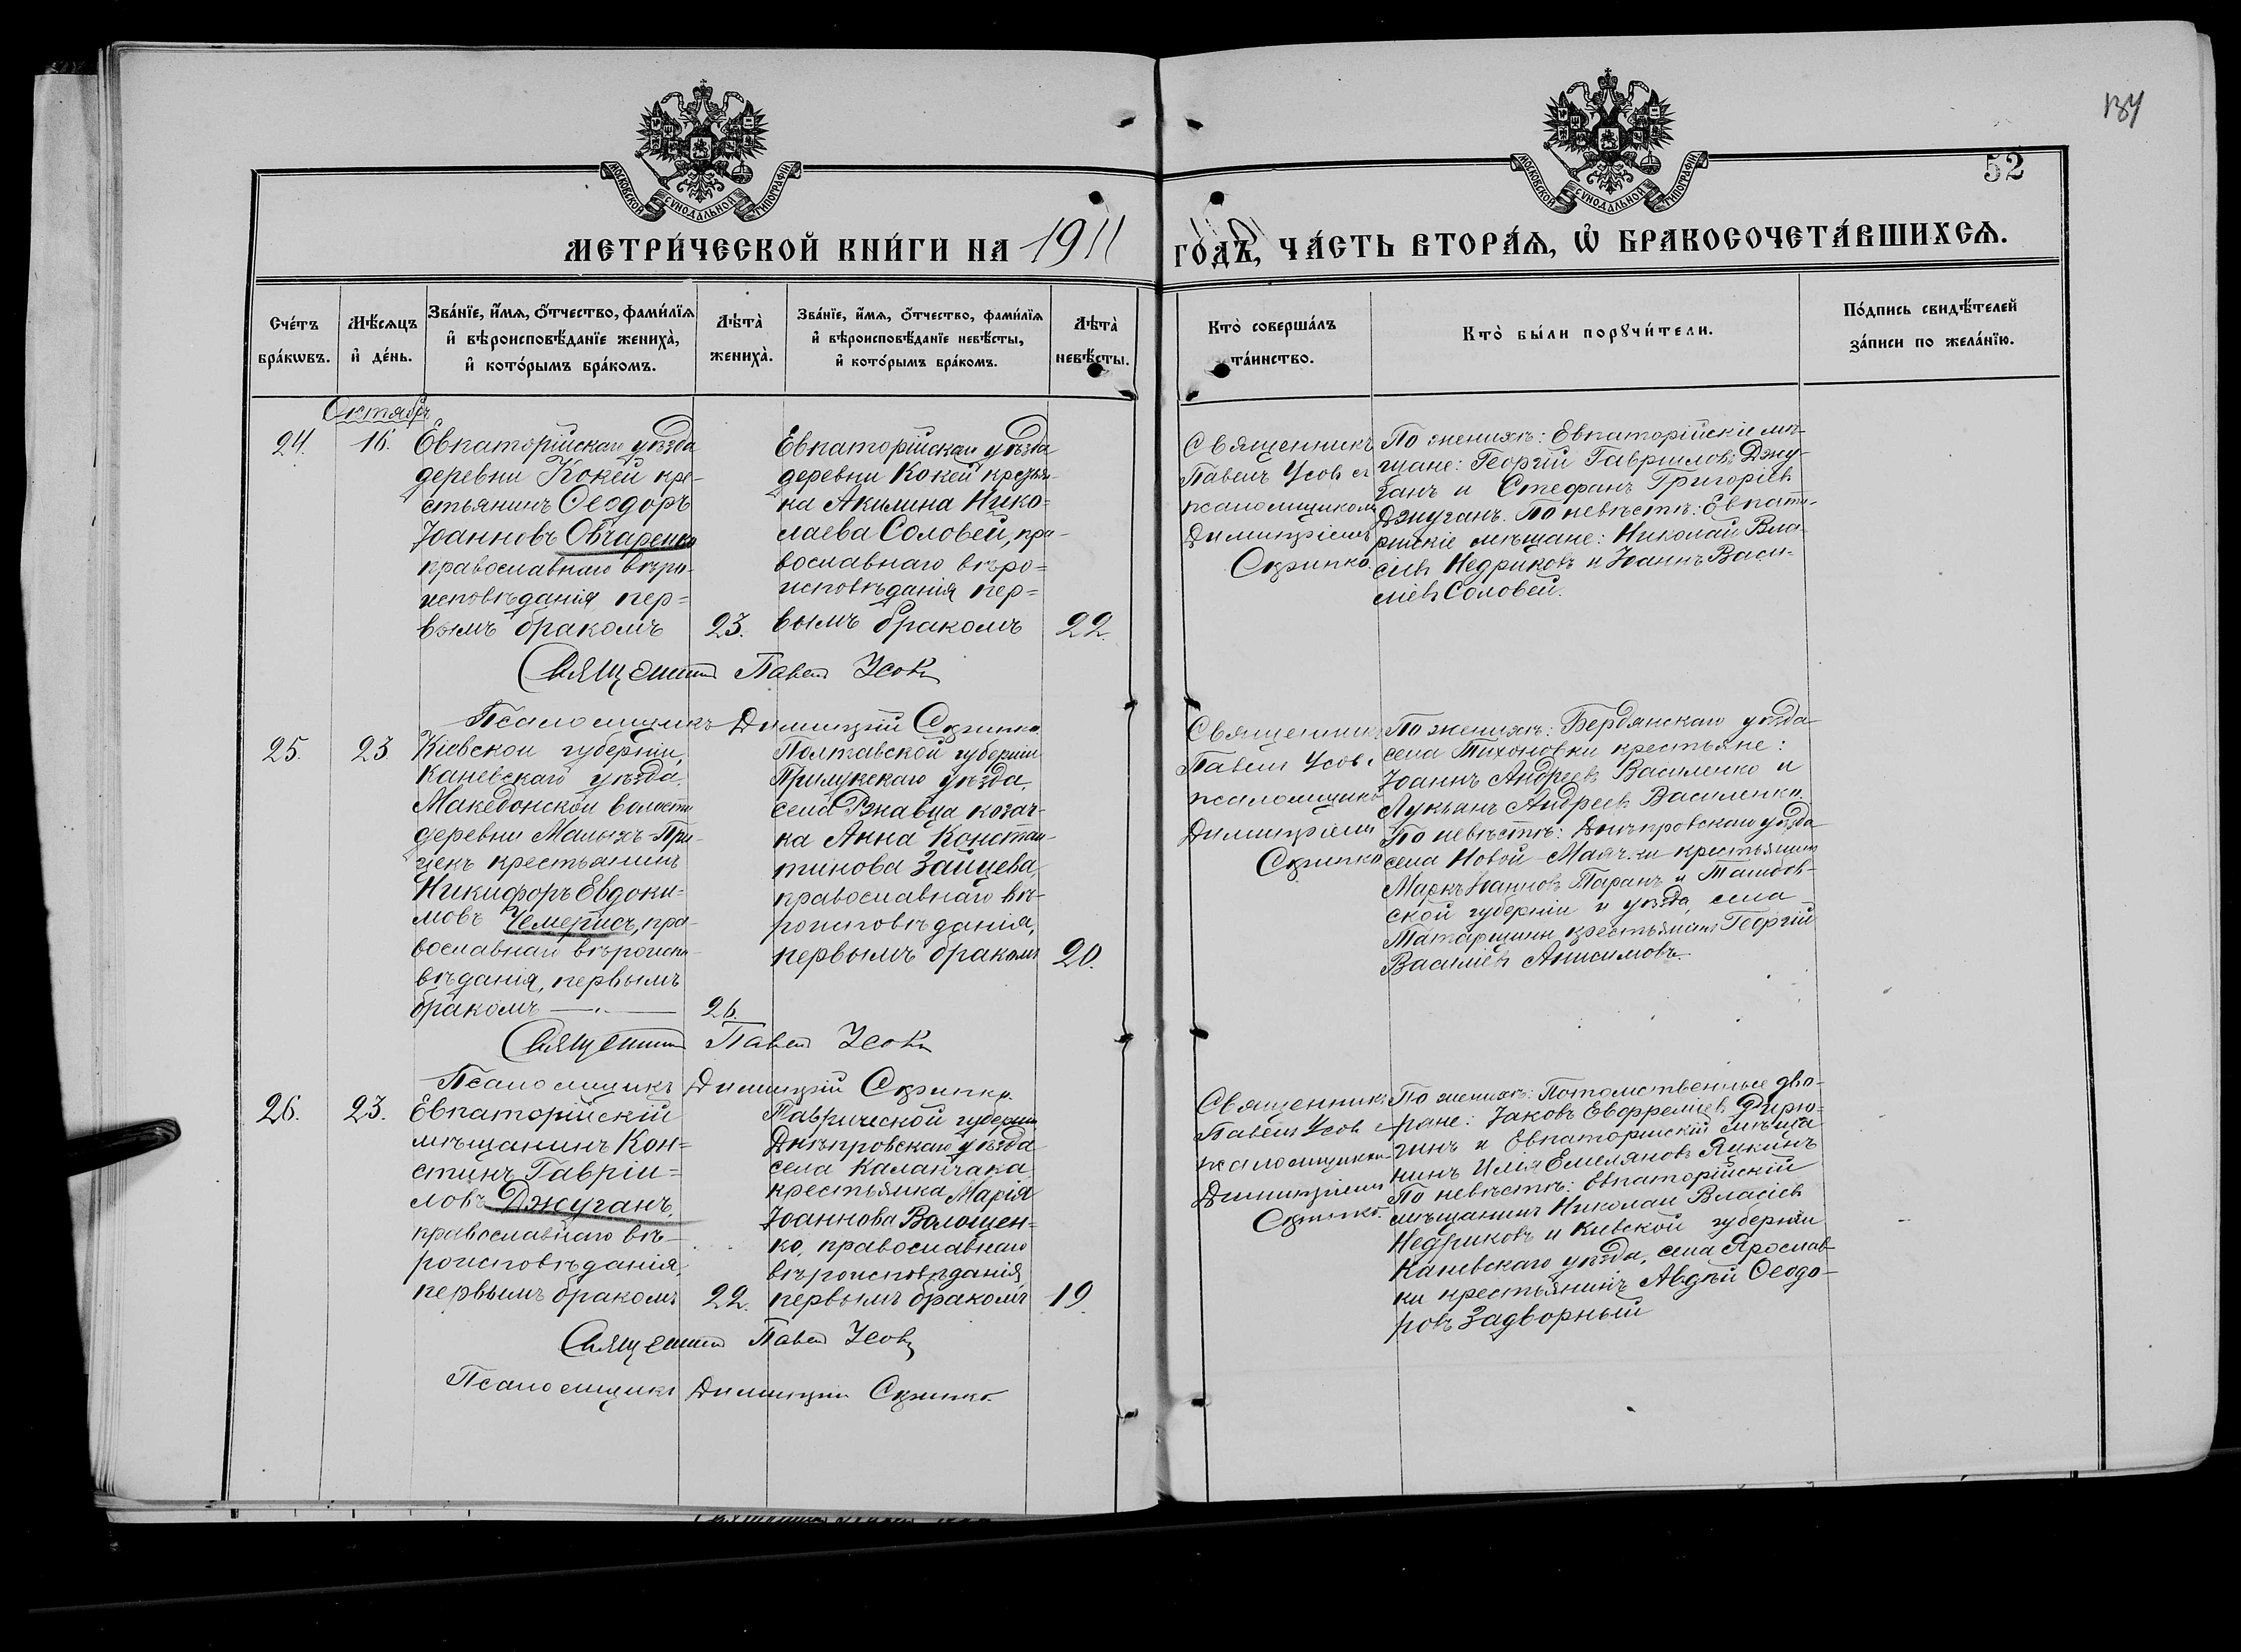 134
52
МОСКОВСКОЙ СѴНОДАЛЬНОЙ ТИПОГРАФІИ
МОСКОВСКОЙ СѴНОДАЛЬНОЙ ТИПОГРАФІИ
МЕТРИ́ЧЕСКОЙ КНИ́ГИ НА 1911 ГО́ДЪ, ЧА́СТЬ ВТОРА́Ѧ, Ѡ҆ БРАКОСОЧЕТА́ВШИХСѦ.
Сче́тъ
бра́кѡвъ.
Мѣ́сѧцъ
и҆ де́нь.
Зва́нїе, и҆́мѧ, ѻ҆́тчество, фами́лїѧ
и҆ вѣроисповѣ́данїе жениха̀,
и҆ кото́рымъ бра́комъ.
Лѣта̀
жениха̀.
Зва́нїе, и҆́мѧ, ѻ҆́тчество, фами́лїѧ
и҆ вѣроисповѣ́данїе невѣ́сты,
и҆ кото́рымъ бра́комъ.
Лѣта̀
невѣ́сты.
Кто̀ соверша́лъ
та́инство.
Кто̀ бы́ли порꙋчи́тели.
По́дпись свидѣ́телей
за́писи по жела́нїю.
Октябрь
24.
16.
Евпаторійскаго уѣзда
деревни Кокей кре-
стьянинъ Ѳеодоръ
Іоанновъ Овчаренко
православнаго вѣро-
исповѣданія, пер=
вымъ бракомъ
23.
Евпаторійскаго уѣзда
деревни Кокей крестьян-
ка Акилина Нико=
лаева Соловей, пра-
вославнаго вѣро=
исповѣданія пер=
вымъ бракомъ
22.
Священникъ
Павелъ Усовъ съ
псаломщикомъ
Димитріемъ
Скрипко.
По женихѣ: Евпаторійскіе мѣ-
щане: Георгій Гавриловъ Джу-
ганъ и Стефанъ Григоріевъ
Джуганъ. По невѣстѣ: Евпато-
рійскіе мѣщане: Николай Вла-
сіевъ Недриковъ и Іоаннъ Васи-
ліевъ Соловей.
Священникъ Павелъ Усовъ
Псаломщикъ Димитрій Скрипко.
25.
23
Кіевской губерніи,
Каневскаго уѣзда
Македонской волости
деревни Малыхъ-При-
цекъ крестьянинъ
Никифоръ Евдоки-
мовъ Чемерисъ, пра-
вославнаго вѣроиспо-
вѣданія, первымъ
бракомъ
26.
Полтавской губерніи
Прилукскаго уѣзда,
села Ржавца козач-
ка Анна Констан-
тинова Зайцева,
православнаго вѣ-
роисповѣданія,
первымъ бракомъ
20.
Священникъ
Павелъ Усовъ с
псаломщикомъ
Димитріемъ
Скрипко
По женихѣ: Бердянскаго уѣзда
села Тихоновки крестьяне:
Іоаннъ Андреевъ Василенко и
Лукьянъ Андреевъ Василенко.
По невѣстѣ: Днѣпровскаго уѣзда
села Новой-Маячки крестьянинъ
Маркъ Іоанновъ Таранъ и Тамбов-
ской губерніи и уѣзда, села
Татарщины крестьянинъ Георгій
Василіевъ Анисимовъ.
Священникъ Павелъ Усовъ
Псаломщикъ Димитрій Скрипко.
26.
23.
Евпаторійскій
мѣщанинъ Кон=
стинъ Гавріи=
ловъ Джуганъ,
православнаго вѣ-
роисповѣданія,
первымъ бракомъ
22.
Таврической губерніи
Днѣпровскаго уѣзда
села Каланчака
крестьянка Марія
Іоаннова Волощен=
ко, православнаго
вѣроисповѣданія,
первымъ бракомъ
19.
Священникъ
Павелъ Усовъ с
псаломщикомъ
Димитріемъ
Скрипко.
По женихѣ: Потомственные дво-
ряне: Іаковъ Евфреміевъ
и Евпаторійскій мѣща
нинъ Илія Емеляновъ Якимъ
По невѣстѣ: Евпаторійскій
мѣщанинъ Николай Власіевъ
Недриковъ и Кіевской губерніи
Каневскаго уѣзда, села Ярослав-
ки крестьянинъ Авдѣй Ѳеодо-
ровъ Задворный
Священникъ Павелъ Усовъ
Псаломщикъ Димитрій Скрипко.